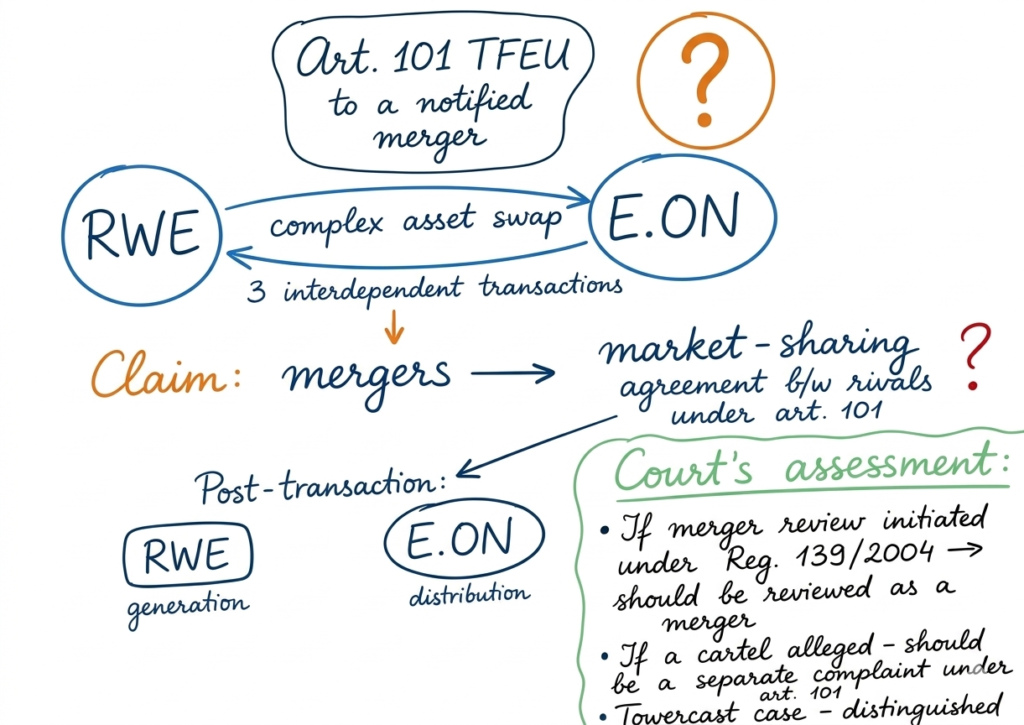 Art. 101 TFEU
to a notified
merger
?
RWE
complex asset swap
E.ON
3 interdependent transactions
Claim: mergers → market-sharing
agreement b/w rivals
under art. 101
?
Post-transaction:
RWE
generation
E.ON
distribution
Court's assessment:
• If merger review initiated
under Reg. 139/2004 →
should be reviewed as a
merger
• If a cartel alleged – should
be a separate complaint under
art. 101
• Towercast case – distinguished